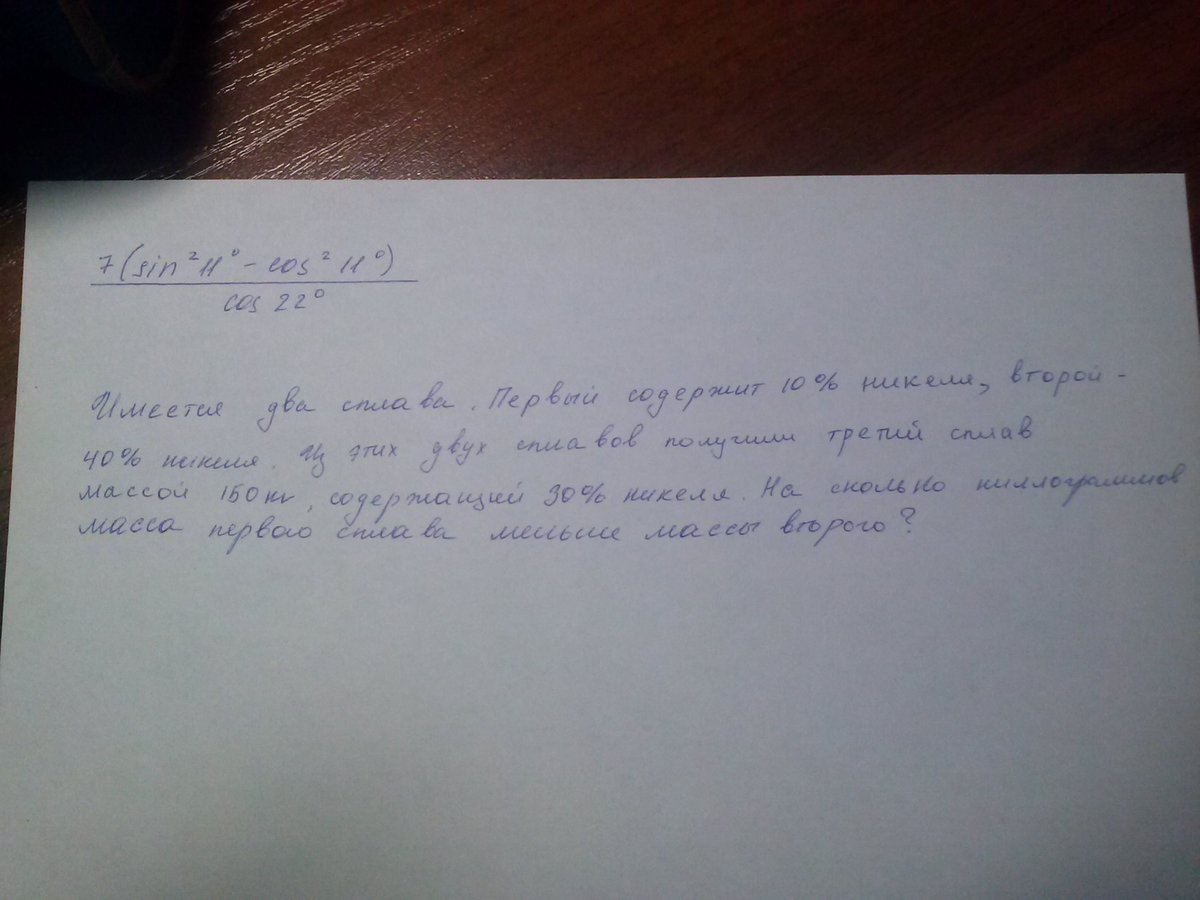 7(sin²11° - cos²11°)
cos 22°
Имеется два сплава. Первый содержит 10% никеля, второй -
40% никеля. Из этих двух сплавов получили третий сплав
массой 150кг, содержащий 30% никеля. На сколько киллограммов
масса первого сплава меньше массы второго?